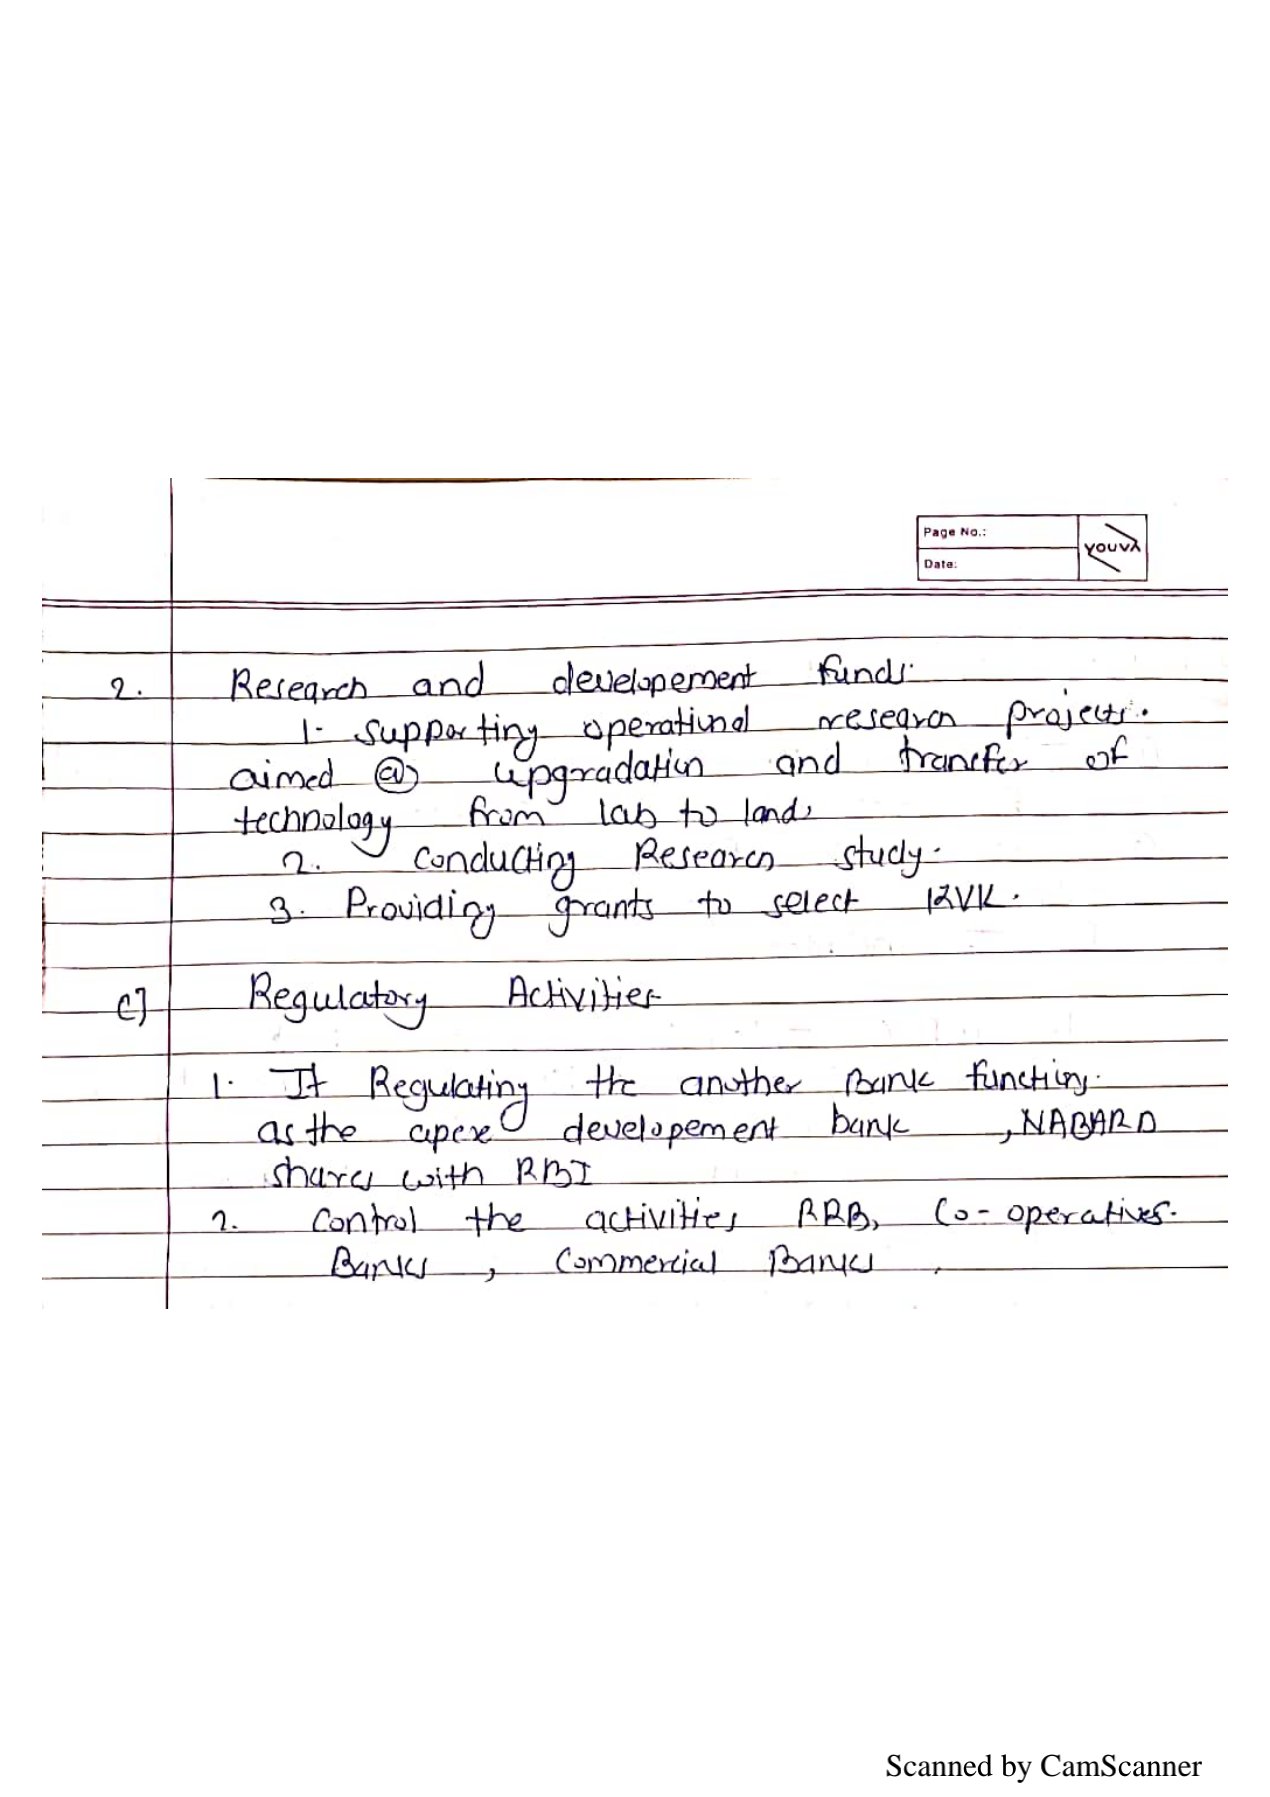 Page No.:
Date:
YOUVA
2. Research and developement funds.
1. Supporting operational research projects.
aimed @ upgradation and transfer of
technology from lab to land.
2. Conducting Research study.
3. Providing grants to select KVK.
C] Regulatory Activities
1. It Regulating the another Bank functions.
as the apex developement bank , NABARD
shares with RBI
2. Control the activities RRB, Co-operatives.
Banks , Commercial Banks .
Scanned by CamScanner